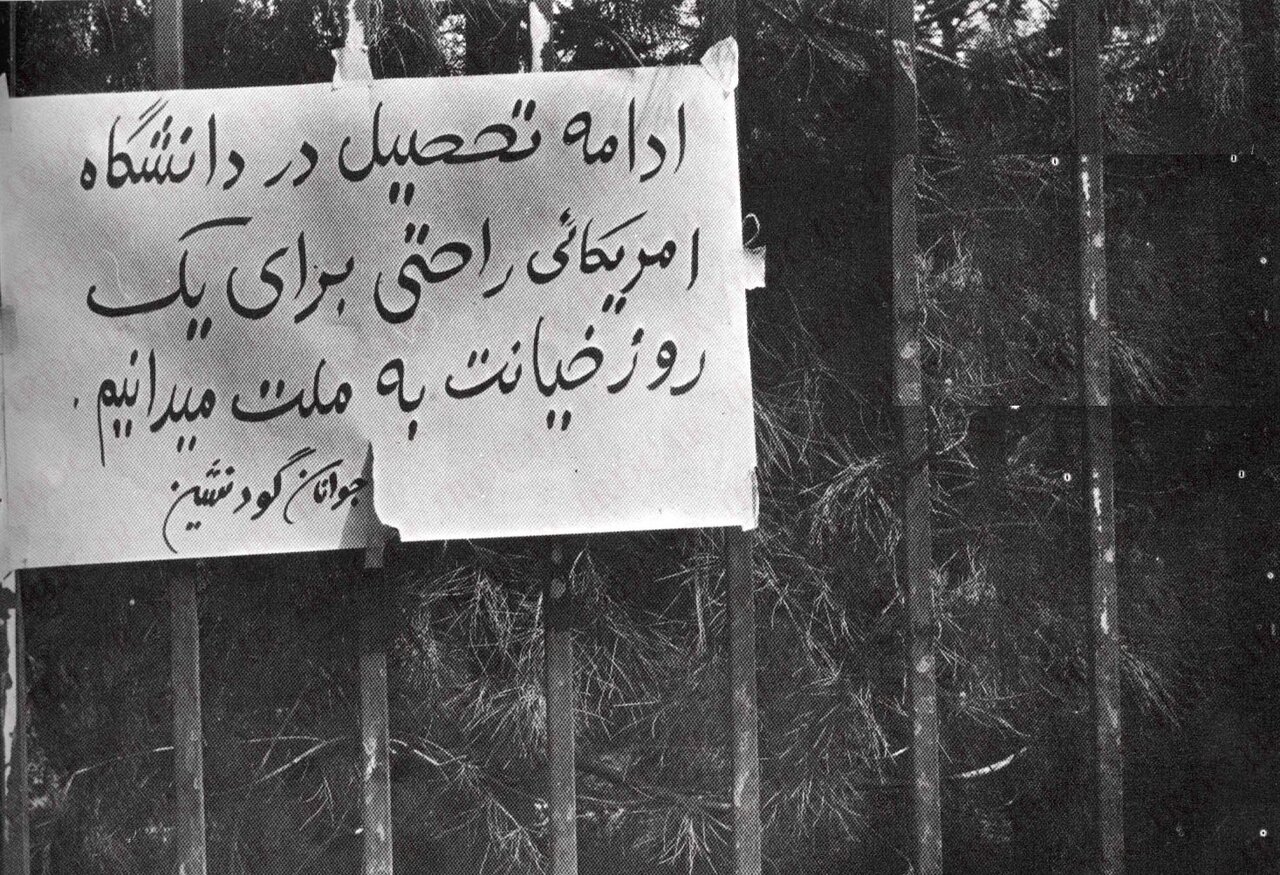 ادامه تحصیل در دانشگاه
امریکائی راحتی برای یک
روز خیانت به ملت میدانیم.
جوانان گود نشین